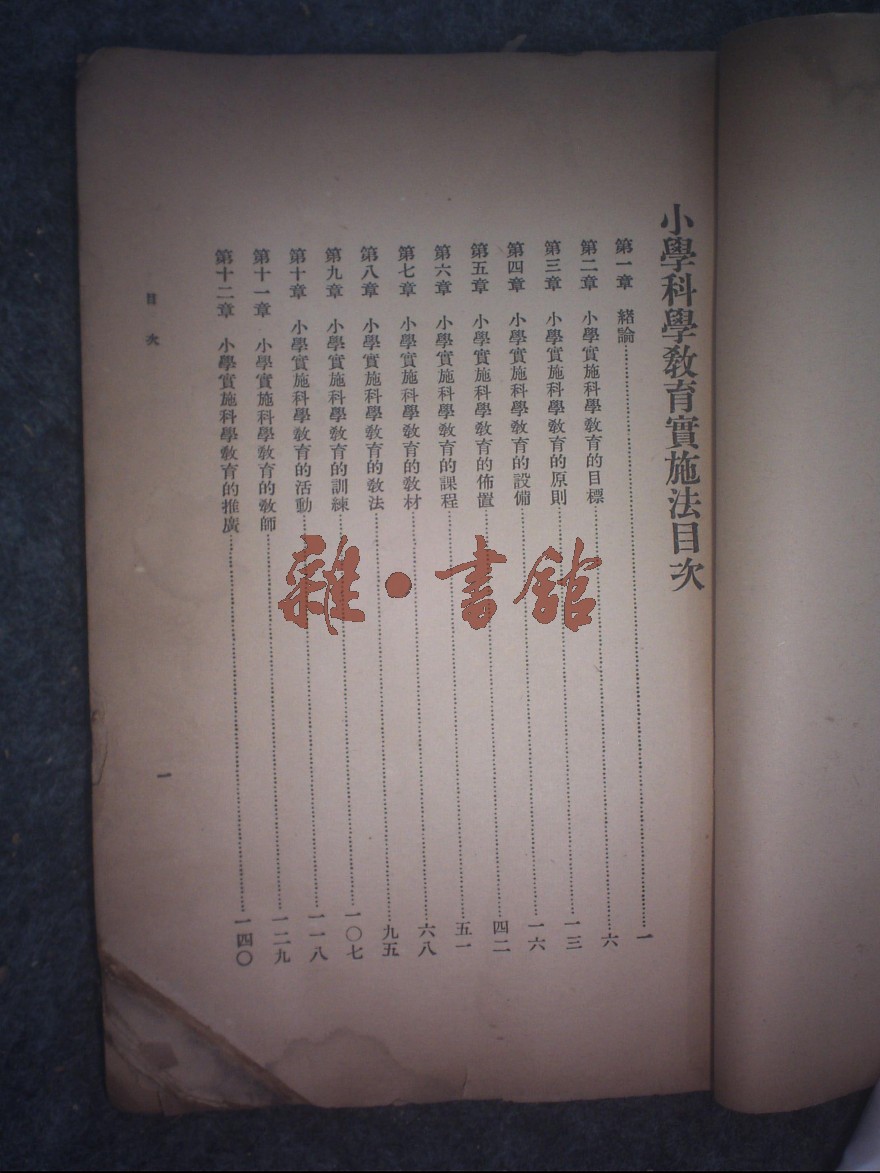 小學科學教育實施法目次
第一章　緒論……一
第二章　小學實施科學教育的目標……六
第三章　小學實施科學教育的原則……一三
第四章　小學實施科學教育的設備……一六
第五章　小學實施科學教育的佈置……四二
第六章　小學實施科學教育的課程……五一
第七章　小學實施科學教育的教材……六八
第八章　小學實施科學教育的教法……九五
第九章　小學實施科學教育的訓練……一〇七
第十章　小學實施科學教育的活動……一一八
第十一章　小學實施科學教育的教師……一二九
第十二章　小學實施科學教育的推廣……一四〇
目次
一
雜·書館